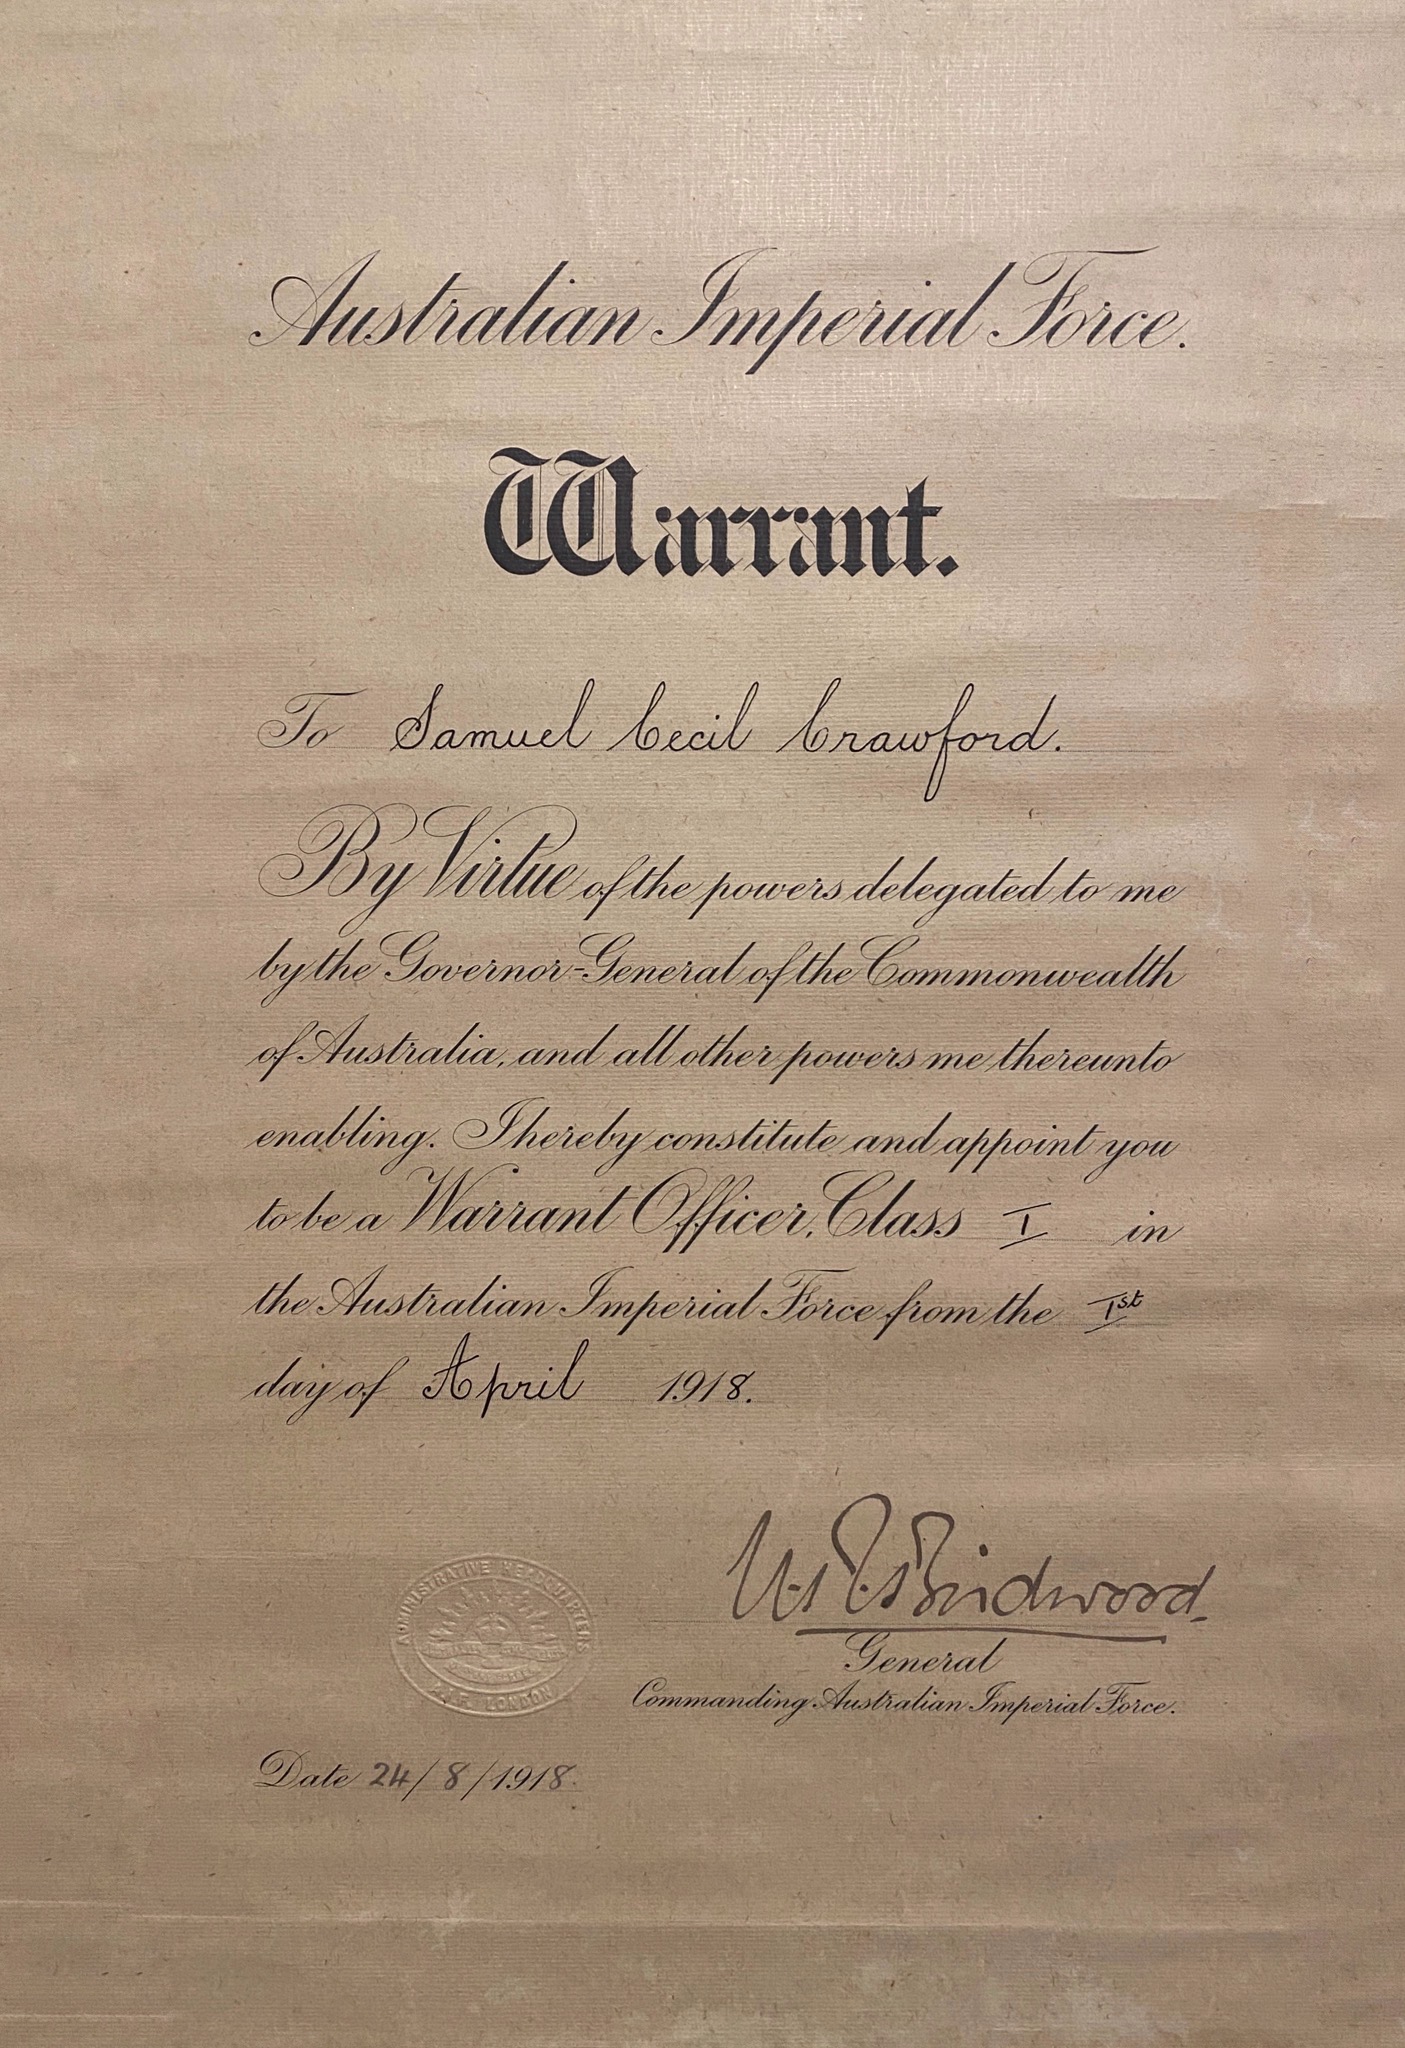 Australian Imperial Force.
Warrant.
To Samuel Cecil Crawford.
By Virtue of the powers delegated to me
by the Governor-General of the Commonwealth
of Australia, and all other powers me thereunto
enabling. I hereby constitute and appoint you
to be a Warrant Officer, Class I in
the Australian Imperial Force from the 1st
day of April 1918.
W. R. Birdwood.
General
Commanding Australian Imperial Force.
ADMINISTRATIVE HEADQUARTERS
A.I.F. LONDON
Date 24/8/1918.